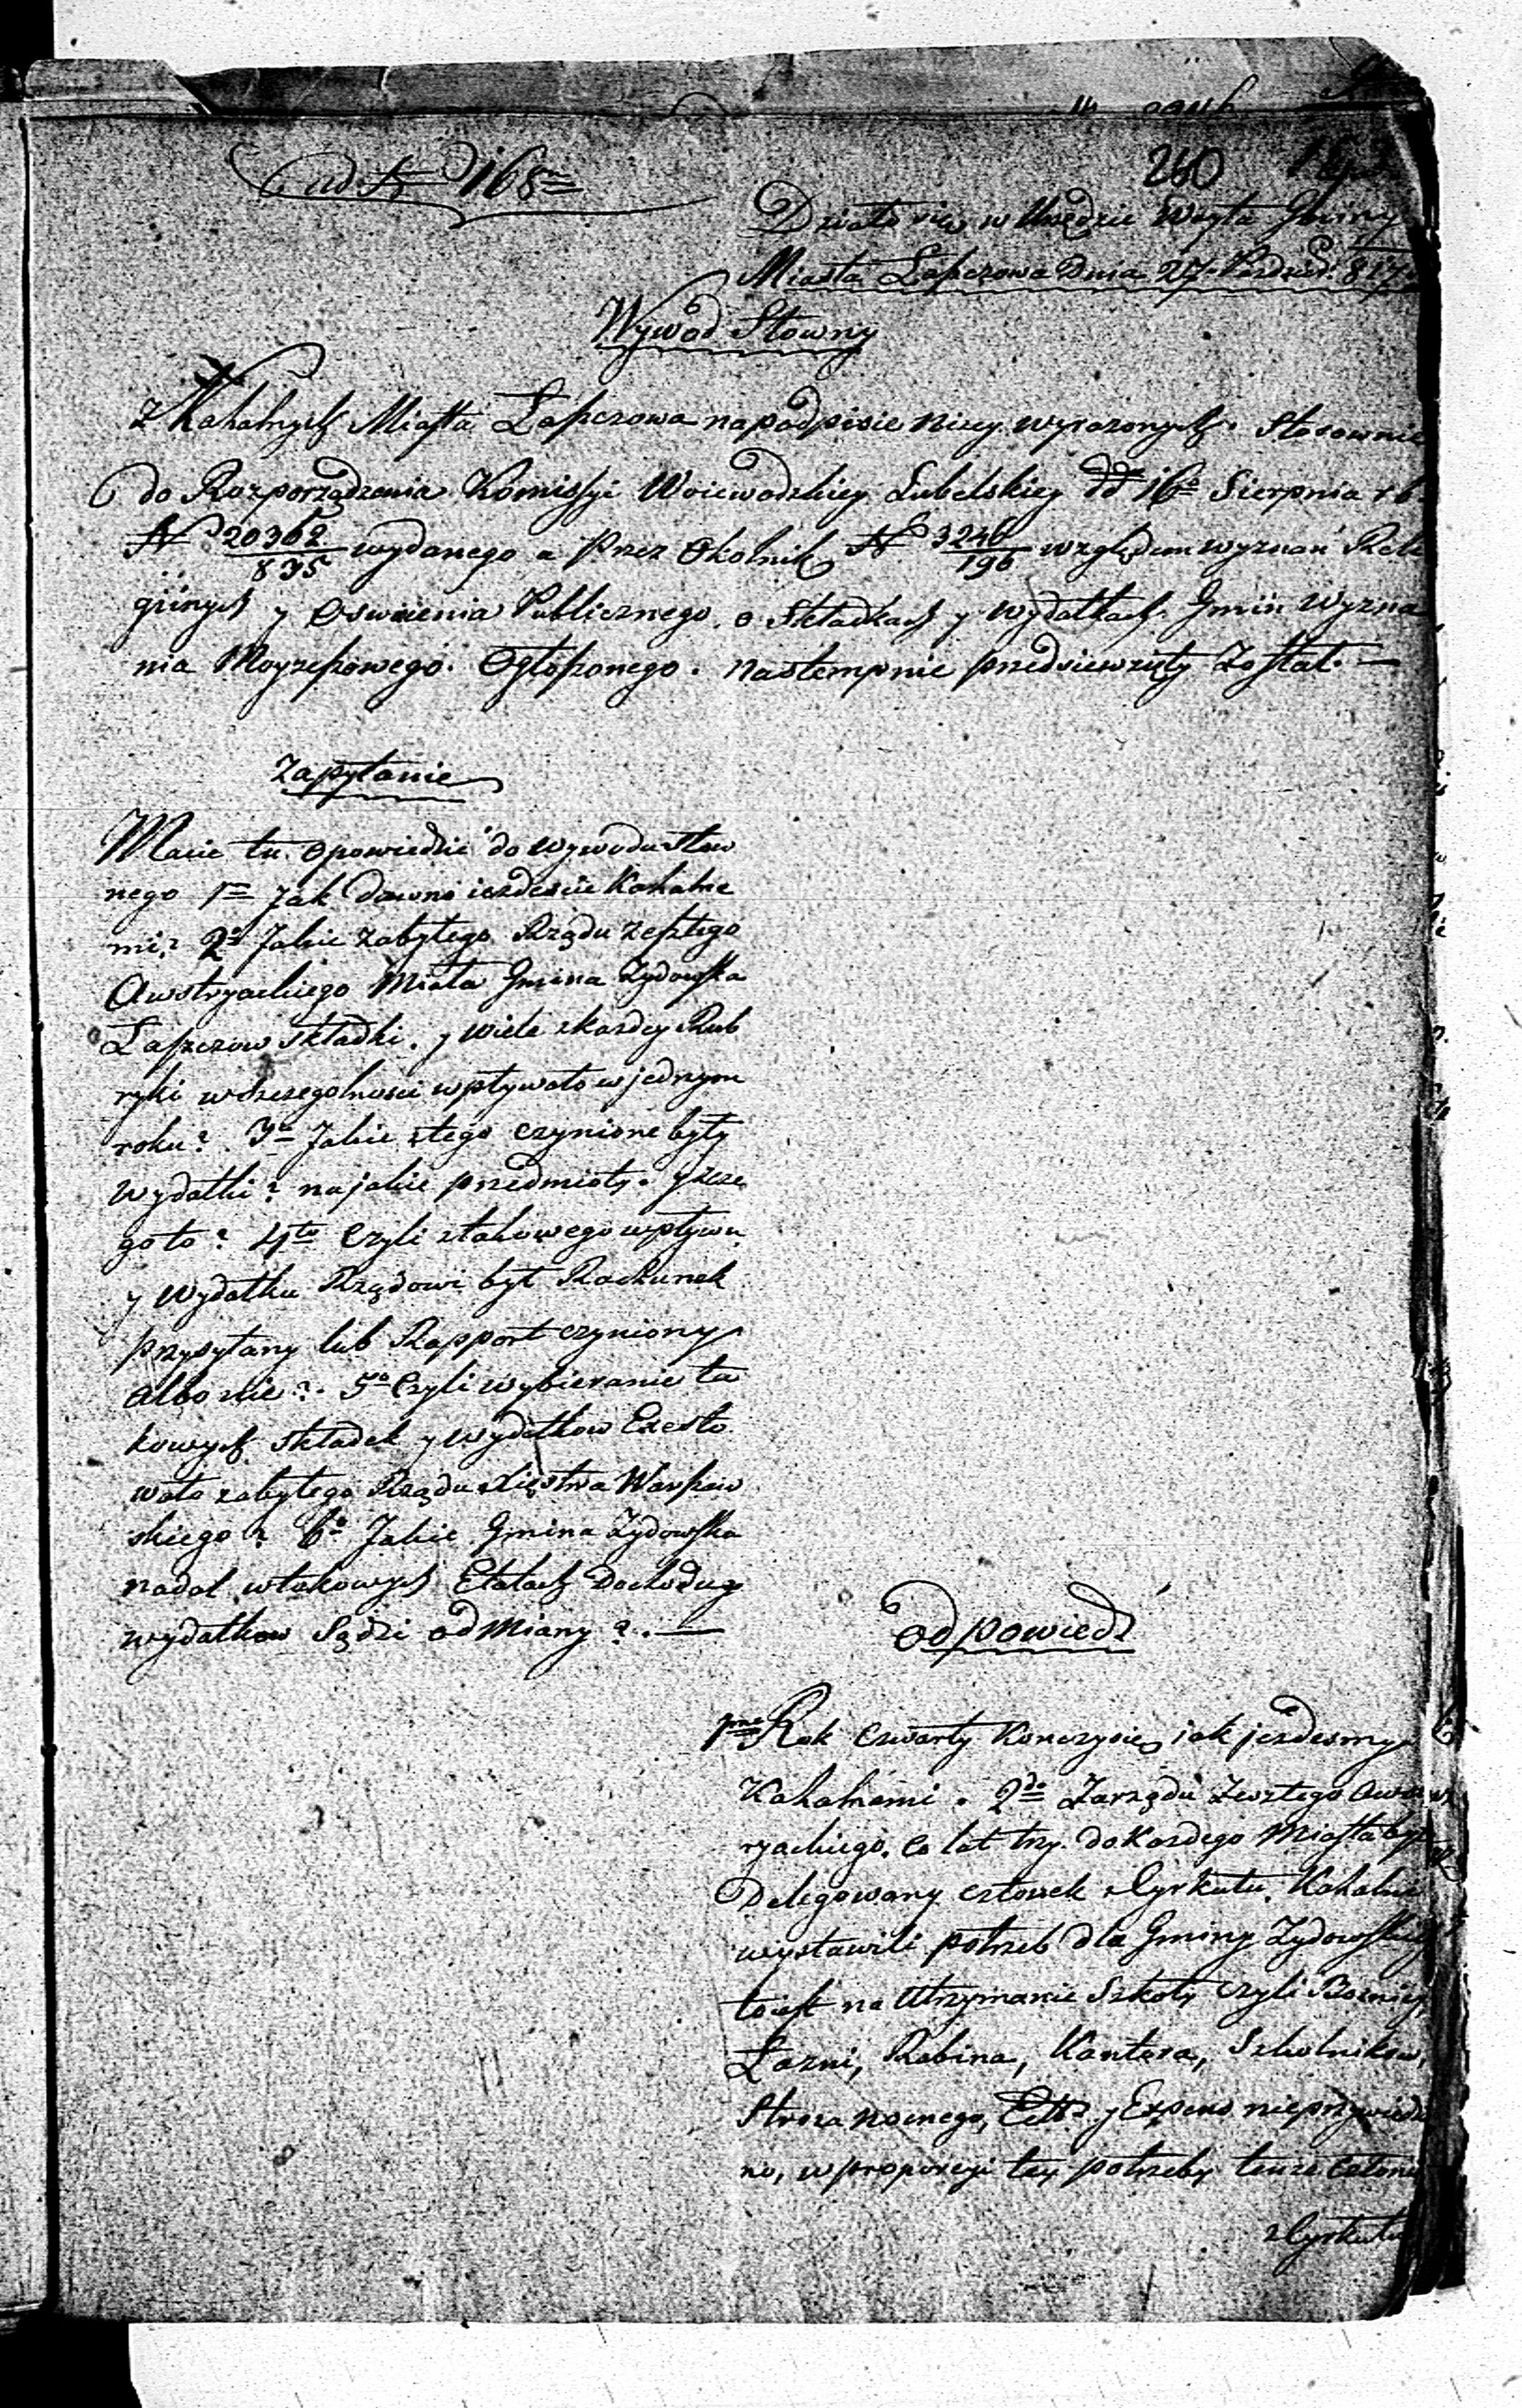 ad N 168
260
Działo się w Urzędzie Woyta Gminy
Miasta Łaszczowa Dnia 27 Pazdzier: 817
Wywod Słowny
z Kahalnych Miasta Łaszczowa na podpisie nizey wyrazonych. Stosownie
do Rozporządzenia Komissyi Woiewodzkiey Lubelskiey dd 16 Sierpnia r b
N 20362/835 wydanego a przez Okolnik N 3246/196 względem wyznań Reli
giinych y Oswiecenia Publicznego. o Składkach y wydatkach Gmin Wyzna
nia Moyzeszowego. Ogłoszonego. Nastempnie przedsiewzięty Został. —
Zapytanie
Macie tu opowiedzić do wywodu słow
nego 1mo Jak dawno iezdescie Kahalne
mi? 2o Jakie zabytego Rządu zeszłego
Awstryackiego Miała Gmina Zydowska
Łaszczow składki. y wiele zkazdey Rub
ryki wszczegolnosci wpływało w jednym
roku? 3o Jakie ztego czynione były
wydatki? na jakie przedmioty. y zcze
go to? 4to Czyli ztakowego wpływu
y wydatku Rządowi był Rachunek
przysyłany lub Rapport czyniony
albo nie? 5o Czyli wybieranie ta
kowych składek y wydatkow Exesto
wało zabytego Rządu Xięstwa Warszaw
skiego? 6o Jakie Gmina Zydowska
nadal wtakowych Etatach Dochodu y
wydatkow Sądzi odmiany? . —
Odpowiedź
1mo Rok czwarty konczysie jak jezdesmy
Kahalnemi. 2do Zarządu Zeszłego Aws
ryackiego, co lat trzy do kazdego Miasta był
Delegowany człowiek z Cyrkułu. Kahalni
wystawili potrzeb dla Gminy Zydowskiey
toiest na Utrzymanie Szkoły czyli Boznicy,
Łazni, Rabina, Kantora, Szkolnikow,
Stroza nocnego, y Expens nieprzywiedzi
no, w proporcyi tey potrzeby tenze człowie
z Cyrkułu